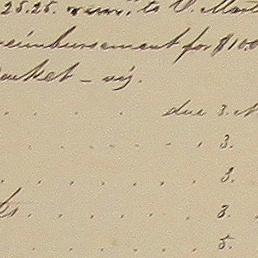 25.25. to V. Mart
reimbursement for $10.0
ocket - viz.
due 3.
3.
3.
ts 3.
5.